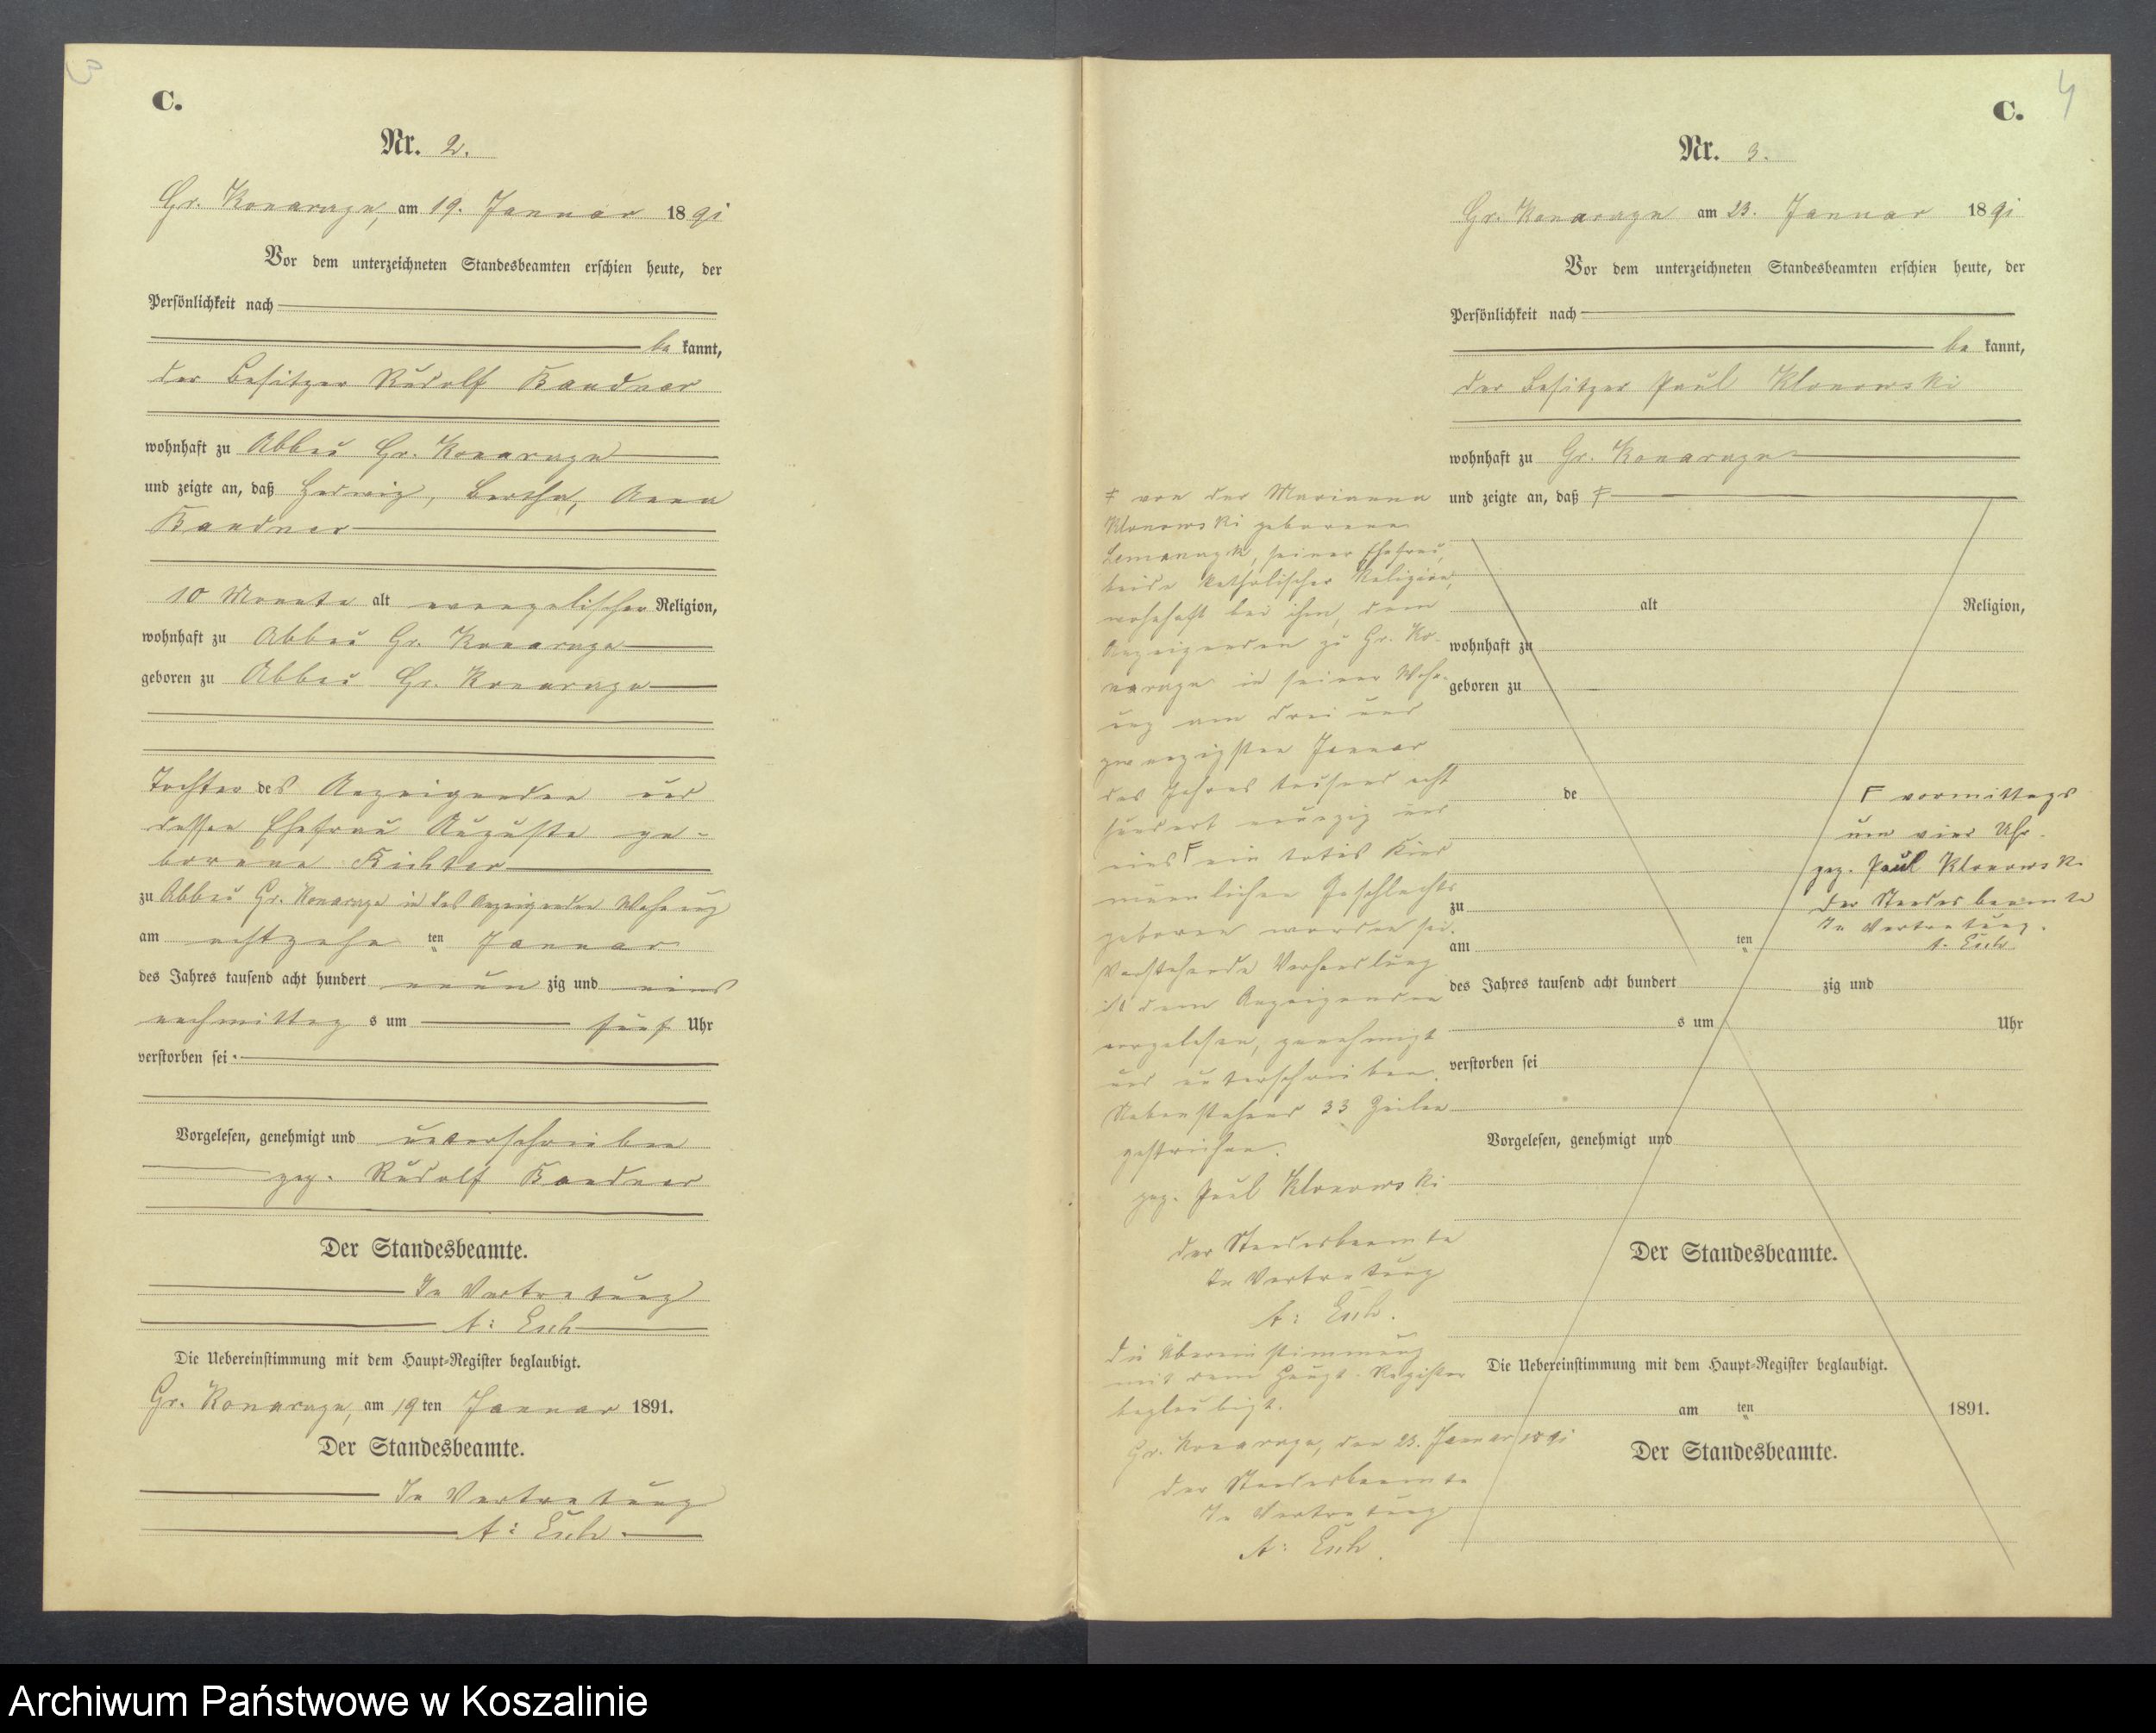 3
C.
Nr. 2.
Gr. Konarczyn, am 19. Januar 1891
Vor dem unterzeichneten Standesbeamten erschien heute, der
Persönlichkeit nach
be kannt,
der Besitzer Rudolf
wohnhaft zu Abbau Gr. Konarczyn
und zeigte an, daß Hedwig, Bertha, Anna
10 Monate alt evangelischer Religion,
wohnhaft zu Abbau Gr. Konarczyn
geboren zu Abbau Gr. Konarczyn
Tochter des Anzeigenden und
dessen Ehefrau Auguste ge-
borene Richter
zu Abbau Gr. Konarczyn in des Anzeigenden Wohnung
am achtzehn ten Januar
des Jahres tausend acht hundert neun zig und eins
nachmittag s um fünf Uhr
verstorben sei.
Vorgelesen, genehmigt und unterschrieben
gez. Rudolf
Der Standesbeamte.
In Vertretung
A:
Die Uebereinstimmung mit dem Haupt-Register beglaubigt.
Gr. Konarczyn, am 19 ten Januar 1891.
Der Standesbeamte.
In Vertretung
A:
4
C.
Nr. 3.
Gr. Konarczyn am 23. Januar 1891
Vor dem unterzeichneten Standesbeamten erschien heute, der
Persönlichkeit nach
be kannt,
der Besitzer Paul Klonowski
wohnhaft zu Gr. Konarczyn
und zeigte an, daß F
alt Religion,
wohnhaft zu
geboren zu
de
zu
am ten
des Jahres tausend acht hundert zig und
s um Uhr
verstorben sei
Vorgelesen, genehmigt und
Der Standesbeamte.
Die Uebereinstimmung mit dem Haupt-Register beglaubigt.
am ten 1891.
Der Standesbeamte.
F von der Marianna
Klonowski geborenen
seiner Ehefrau,
beide katholischer Religion,
wohnhaft bei ihm, dem
Anzeigenden zu Gr. Ko-
narczyn in seiner Wohn-
ung am drei und
zwanzigsten Januar
des Jahres tausend acht
hundert neunzig und
eins F ein todtes Kind
männlichen Geschlechts
geboren worden sei.
Vorstehende Verhandlung
ist dem Anzeigenden
vorgelesen, genehmigt
und unterschrieben.
Nebenstehend 33 Zeilen
gestrichen.
gez. Paul Klonowski
Der Standesbeamte
In Vertretung
A:
Die Übereinstimmung
mit dem Haupt-Register
beglaubigt.
Gr. Konarczyn, den 23. Januar 1891
Der Standesbeamte
In Vertretung
A:
F vormittags
um vier Uhr.
gez. Paul Klonowski
Der Standesbeamte
In Vertretung.
A.
Archiwum Państwowe w Koszalinie